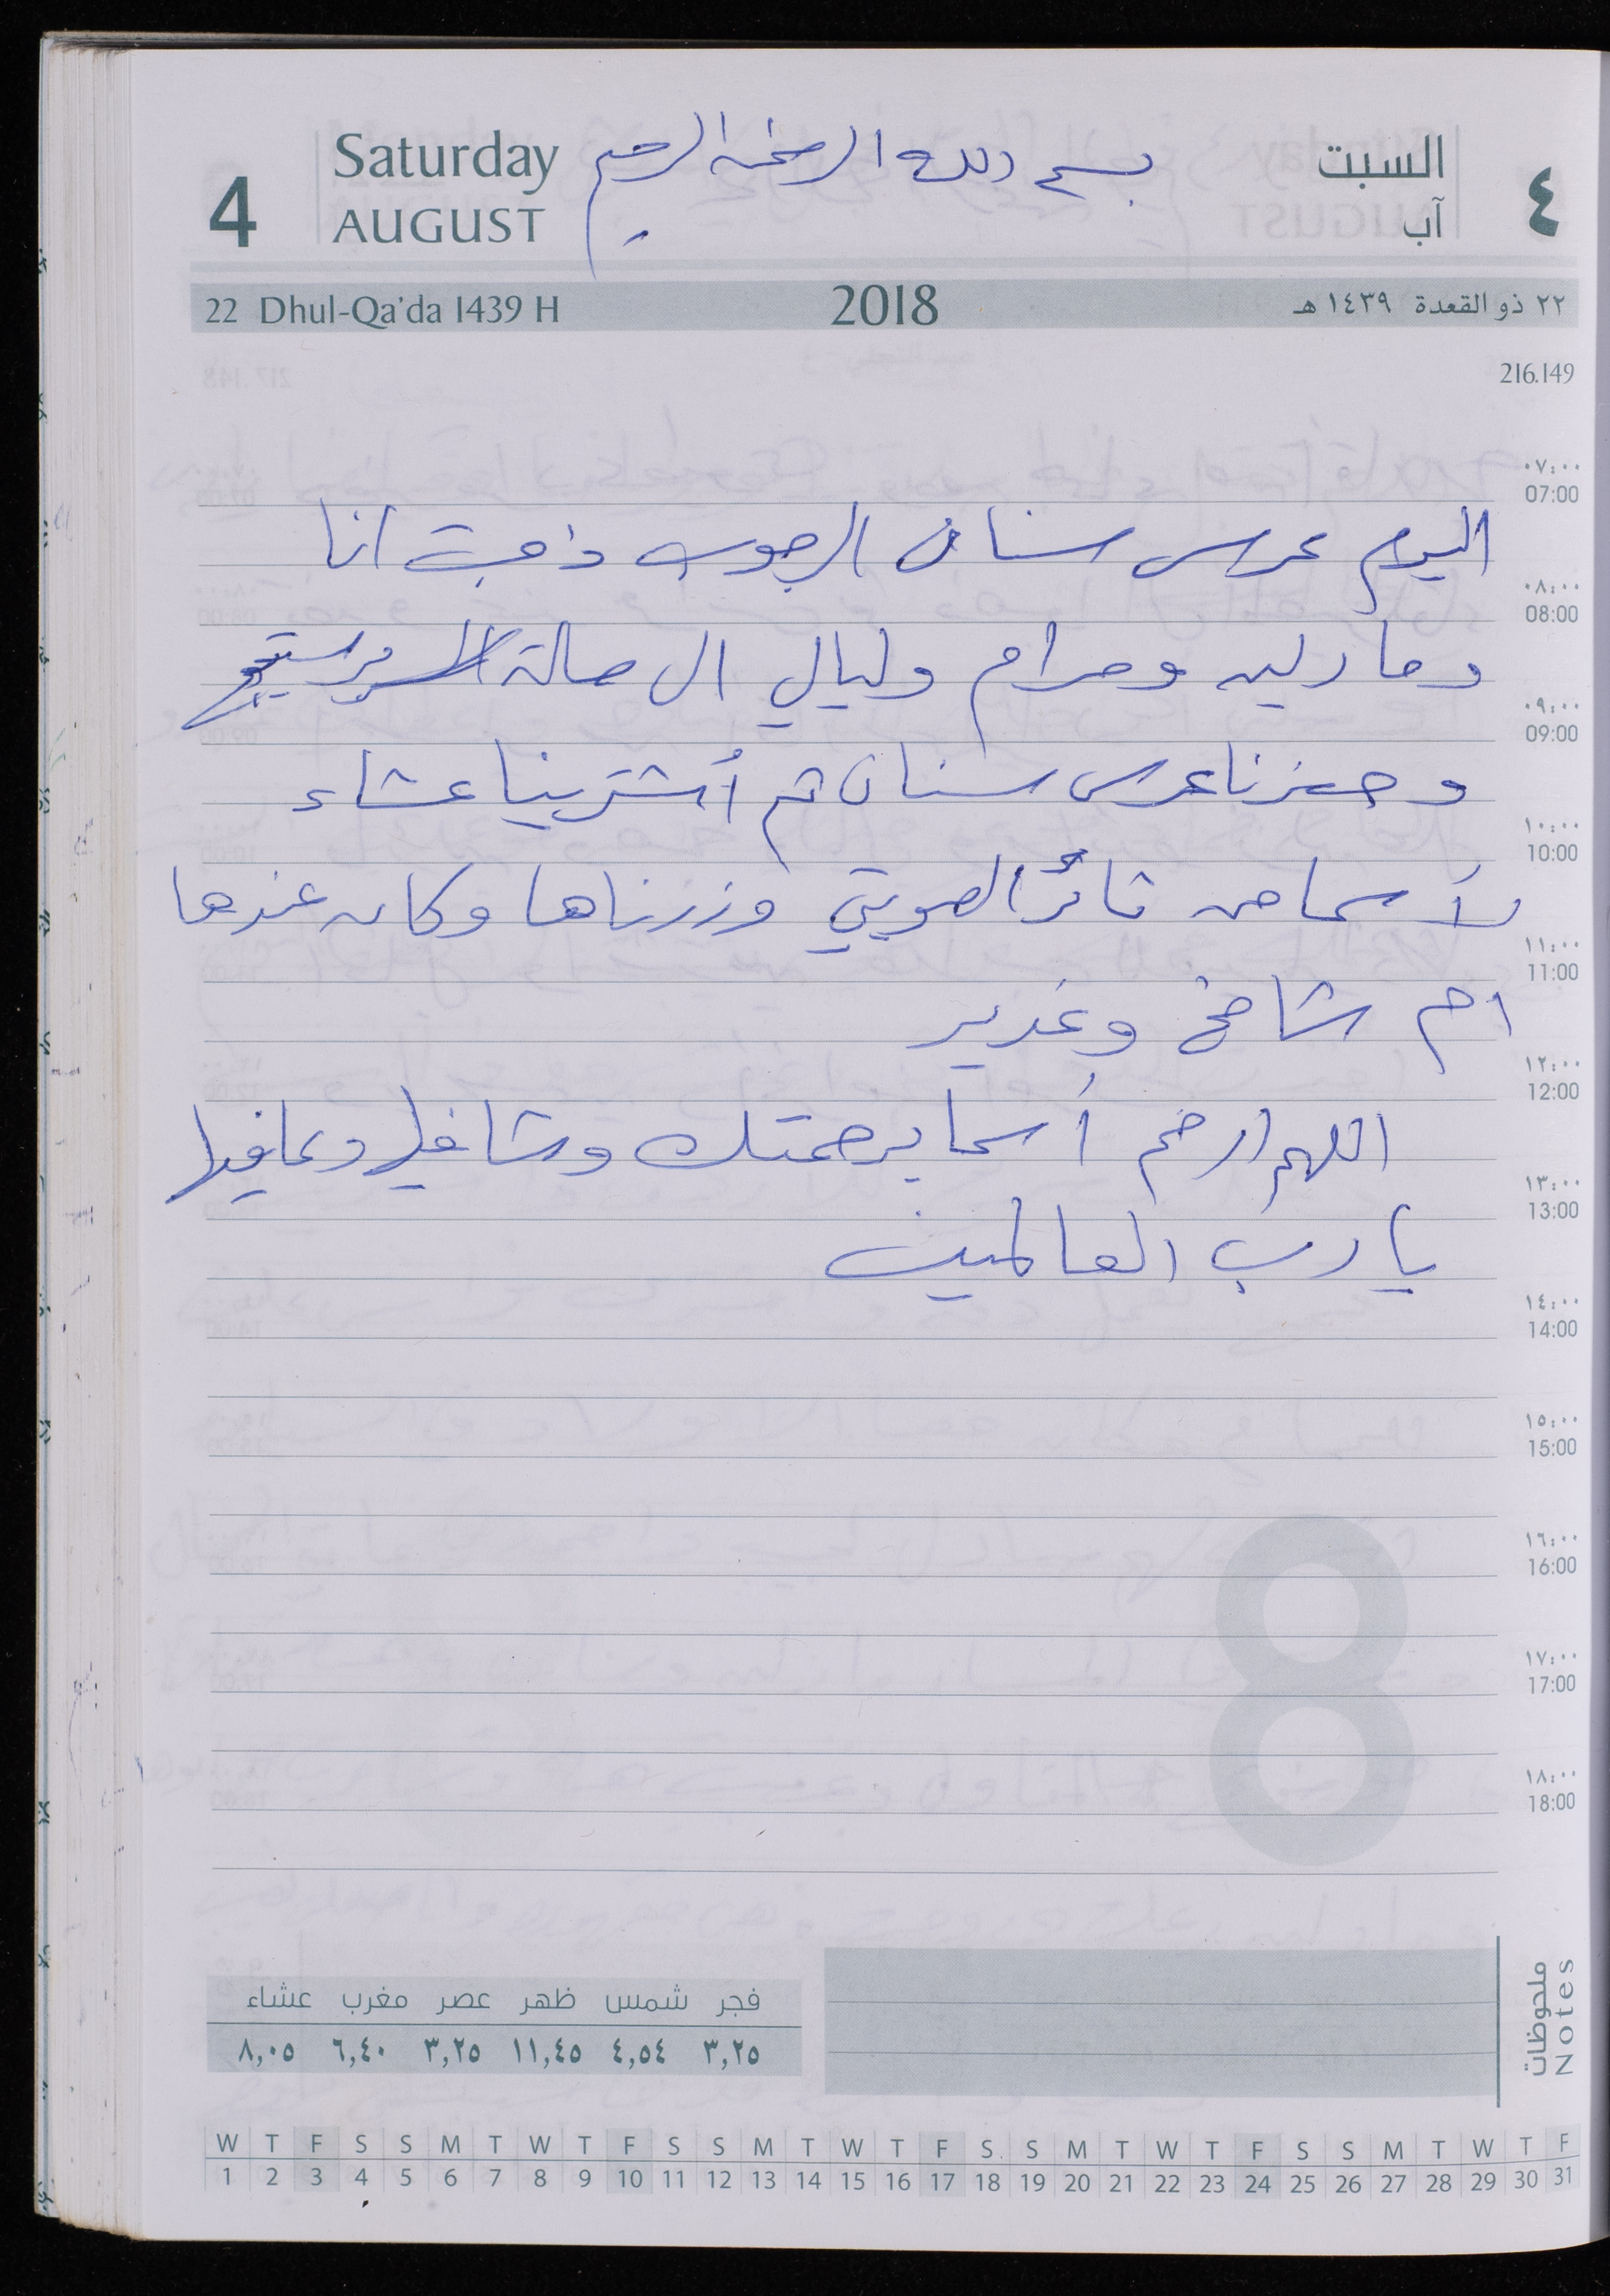 4
Saturday
AUGUST
بسم الله الرحمن الرحيم
السبت
آب
٤
22 Dhul-Qa'da 1439 H
2018
٢٢ ذو القعدة ١٤٣٩ هـ
216.149
٠٧:٠٠
07:00
اليوم عرس سنان الرجوب ذهبت انا
٠٨:٠٠
08:00
ومادلين ومرام وليالي الى صالة
٠٩:٠٠
09:00
وحضرنا عرس سنان ثم أشترينا عشاء
١٠:٠٠
10:00
لأسما من ثائر الصويتي وزرناها وكان عندها
١١:٠٠
11:00
ام شامخ وغدير
١٢:٠٠
12:00
اللهم ارحم أسما برحمتك وشافيها وعافيها
١٣:٠٠
13:00
يا رب العالمين
١٤:٠٠
14:00
١٥:٠٠
15:00
١٦:٠٠
16:00
8
١٧:٠٠
17:00
١٨:٠٠
18:00
ملحوظات
Notes
فجر شمس ظهر عصر مغرب عشاء
٣,٢٥ ٤,٥٤ ١١,٤٥ ٣,٢٥ ٦,٤٠ ٨,٠٥
W T F S S M T W T F S S M T W T F S S M T W T F S S M T W T F
1 2 3 4 5 6 7 8 9 10 11 12 13 14 15 16 17 18 19 20 21 22 23 24 25 26 27 28 29 30 31